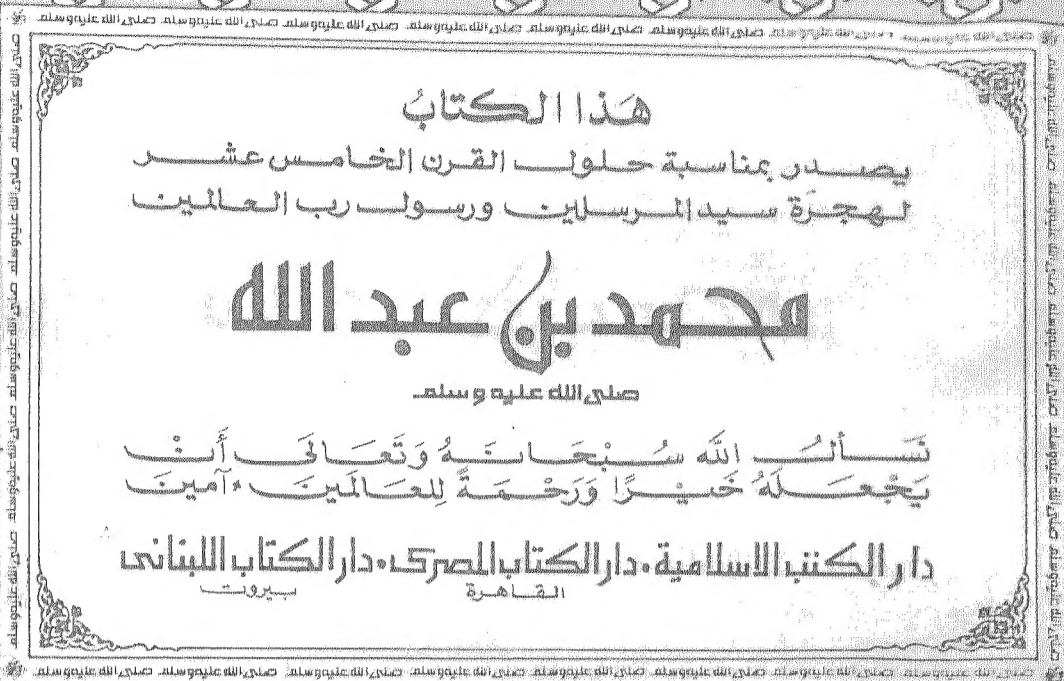 صلى الله عليه وسلم صلى الله عليه وسلم صلى الله عليه وسلم صلى الله عليه وسلم صلى الله عليه وسلم صلى الله عليه وسلم صلى الله عليه وسلم
هَذا الكتابُ
يصدر بمناسبة حلول القرن الخامس عشر
لهجرة سيد المرسلين ورسول رب العالمين
محمد بن عبد الله
صلى الله عليه وسلم
نَسَألُ اللّه سُبْحَانَهُ وَتَعَالَى أَنْ
يَجْعَلَهُ خَيْرًا وَرَحْمَةً لِلعَالَمينَ • آمينَ
دار الكتب الاسلامية • دار الكتاب المصرى • دار الكتاب اللبنانى
القاهرة بيروت
صلى الله عليه وسلم صلى الله عليه وسلم صلى الله عليه وسلم صلى الله عليه وسلم صلى الله عليه وسلم صلى الله عليه وسلم صلى الله عليه وسلم صلى الله عليه وسلم